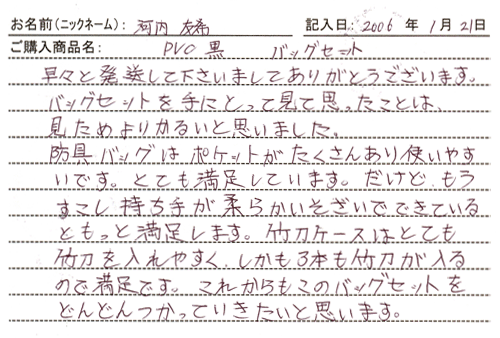 お名前(ニックネーム): 河内 友希 記入日: 2006 年 1月 21日
ご購入商品名: PVC 黒 バッグセット
早々と発送して下さいましてありがとうございます。
バッグセットを手にとって見て思ったことは、
見ためよりかるいと思いました。
防具バッグはポケットがたくさんあり使いやす
いです。とても満足しています。だけど、もう
すこし持ち手が柔らかいそざいでできている
ともっと満足します。竹刀ケースはとても
竹刀を入れやすく、しかも3本も竹刀が入る
ので満足です。これからもこのバッグセットを
どんどんつかっていきたいと思います。